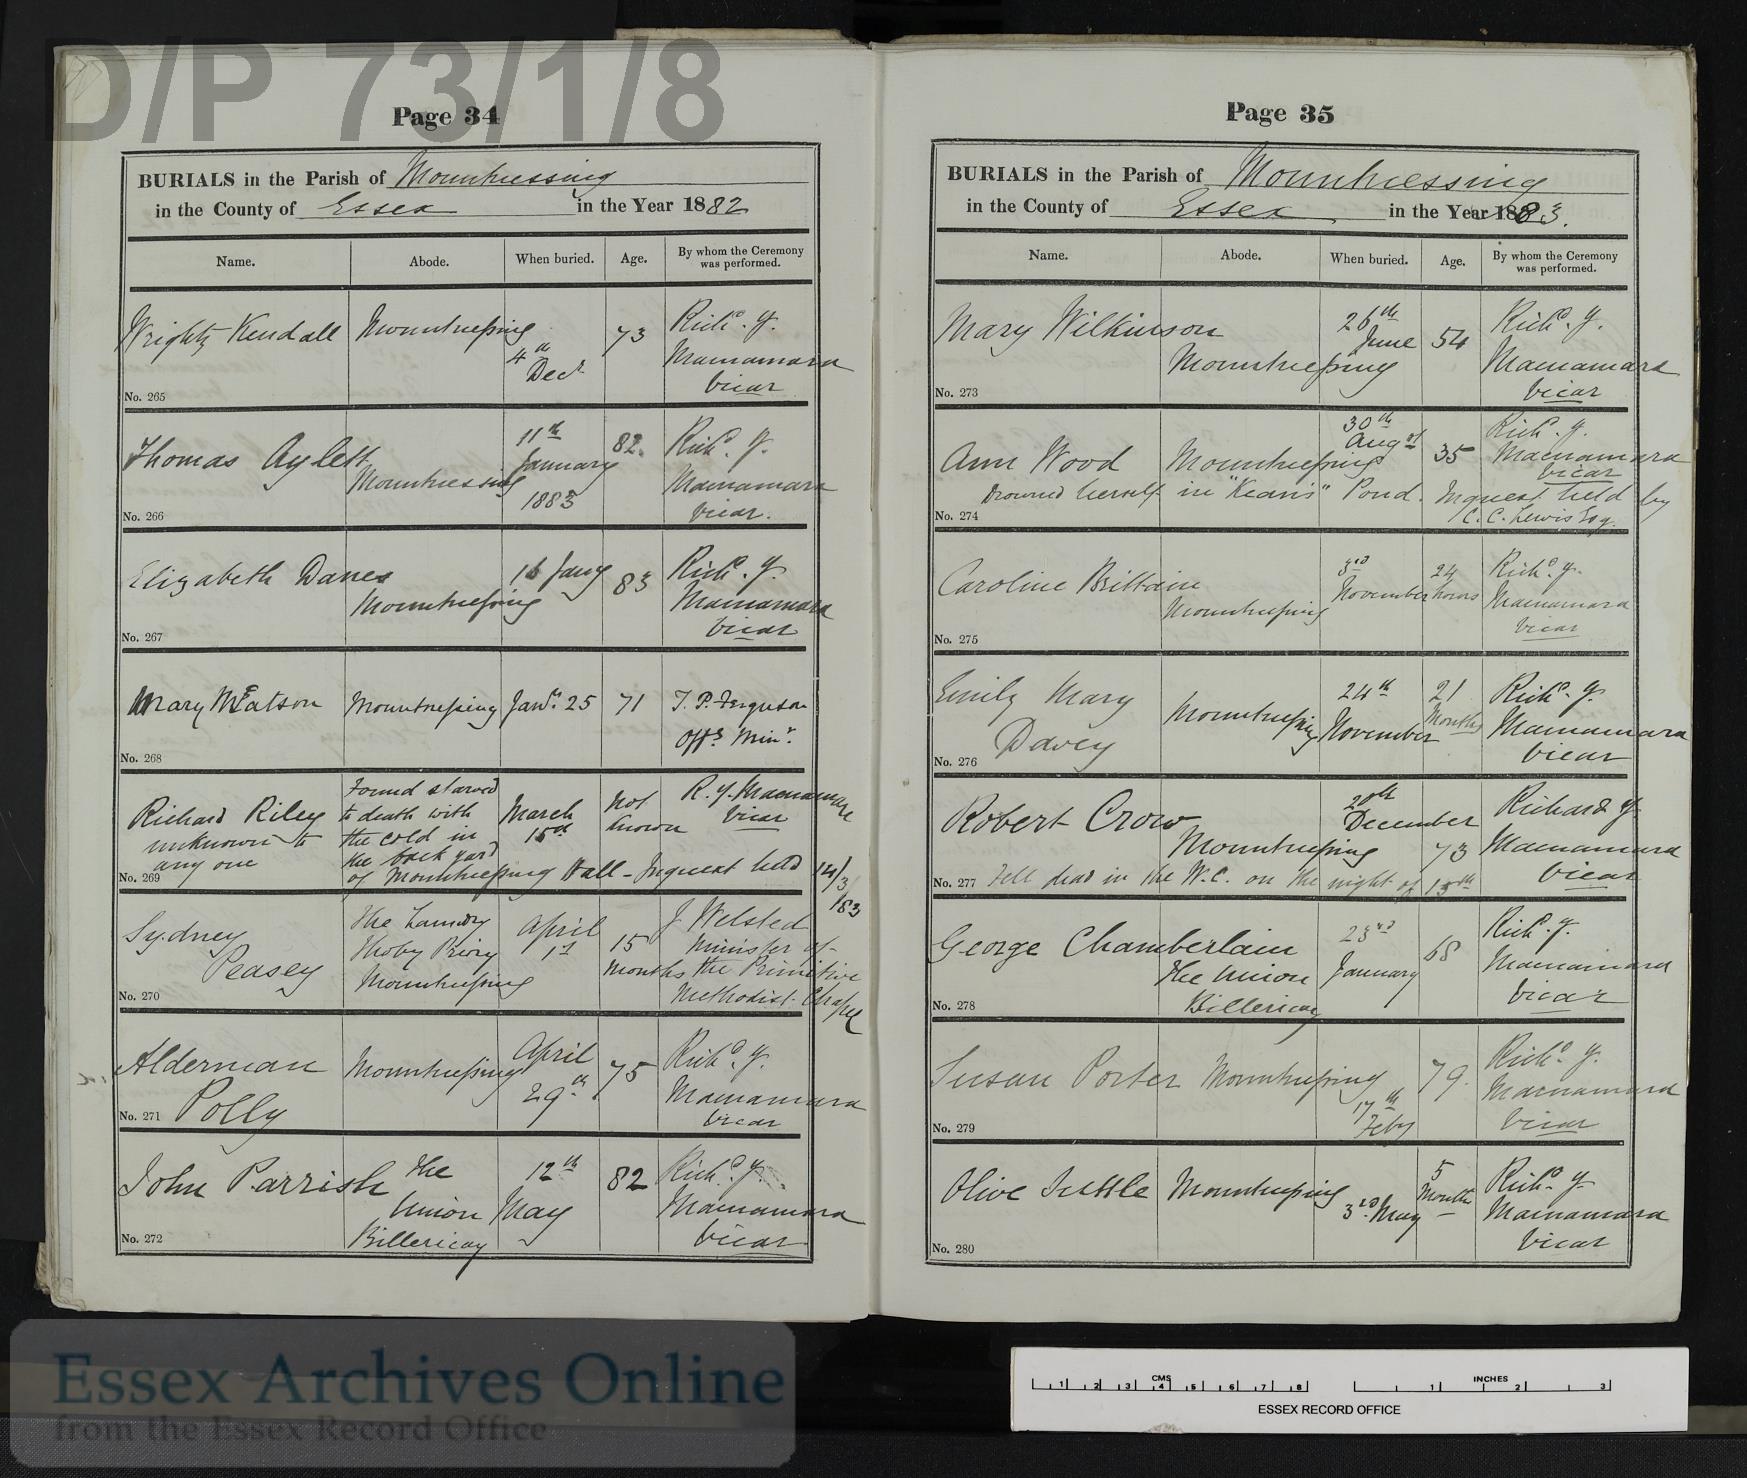 D/P 73/1/8
Page 34
BURIALS in the Parish of Mountnessing
in the County of Essex in the Year 1882
Name. Abode. When buried. Age. By whom the Ceremony was performed.
Wright Kendall Mountnessing 4th Decr 73 Richd. Y. Macnamara Vicar
No. 265
Thomas Aylett Mountnessing 11th January 1883 82. Richd. Y. Macnamara Vicar.
No. 266
Elizabeth Danes Mountnessing 16 Jany 83 Richd. Y. Macnamara Vicar
No. 267
Mary Watson Mountnessing Jany. 25 71 T. P. Ferguson Offg Minr.
No. 268
Richard Riley unknown to any one Found starved to death with the cold in the back yard of Mountnessing Hall - Inquest held 14/3/83 March 15th Not known R. Y. Macnamara Vicar
No. 269
Sydney Peasey The Laundry Thoby Priory Mountnessing April 1st 15 months J Welsted Minister of the Primitive Methodist Chapel
No. 270
Alderman Polly Mountnessing April 29th 75 Richd. Y. Macnamara Vicar
No. 271
John Parrish The Union Billericay 12th May 82 Richd. Y. Macnamara Vicar
No. 272
Page 35
BURIALS in the Parish of Mountnessing
in the County of Essex in the Year 1883.
Name. Abode. When buried. Age. By whom the Ceremony was performed.
Mary Wilkinson Mountnessing 26th June 54 Richd. Y. Macnamara Vicar
No. 273
Ann Wood Mountnessing 30th Augst 35 Richd. Y. Macnamara Vicar
Drowned herself in Pond. Inquest held by
No. 274 C. C. Lewis Esq.
Caroline Brittain Mountnessing 3rd November 24 hours Richd. Y. Macnamara Vicar
No. 275
Emily Mary Davey Mountnessing 24th November 21 Months Richd. Y. Macnamara Vicar
No. 276
Robert Crow Mountnessing 20th December 73 Richard Y. Macnamara Vicar
No. 277 Fell dead in the W.C. on the night of 15th
George Chamberlain The Union Billericay 23rd January 68 Richd. Y. Macnamara Vicar
No. 278
Susan Porter Mountnessing 17th Feby 79. Richd. Y. Macnamara Vicar
No. 279
Olive Suttle Mountnessing 3rd May 5 Months Richd. Y. Macnamara Vicar
No. 280
Essex Archives Online
from the Essex Record Office
CMS
1 2 3 4 5 6 7 8
INCHES
1 2 3
ESSEX RECORD OFFICE